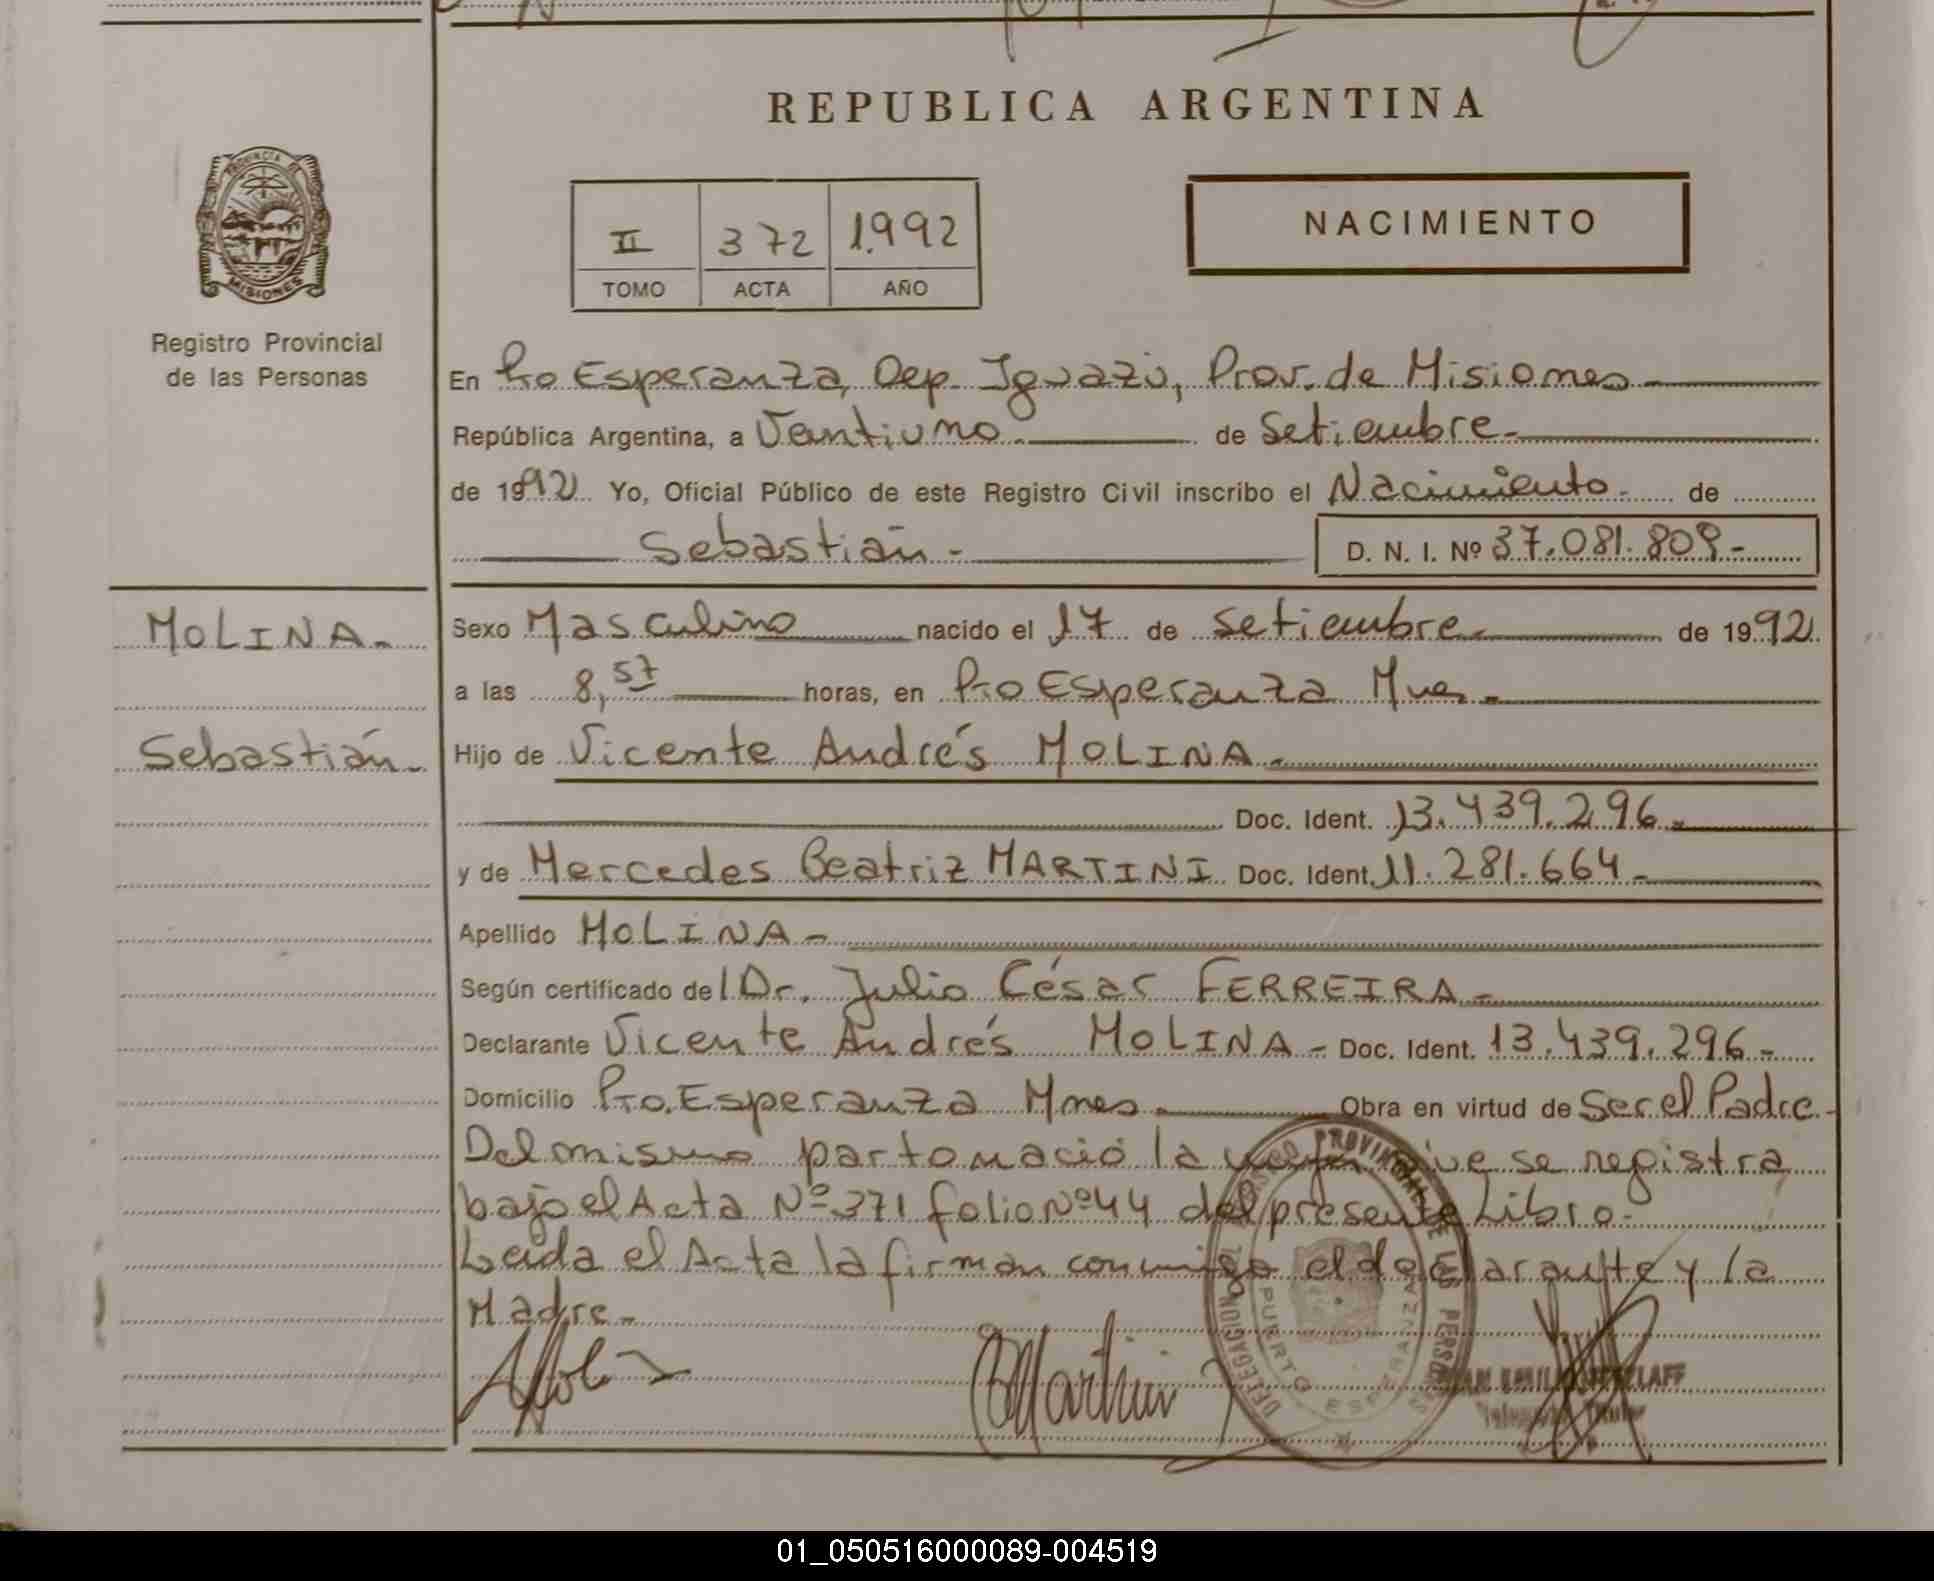 REPUBLICA ARGENTINA
PROVINCIA DE
MISIONES
Registro Provincial
de las Personas
II 372 1.992
TOMO ACTA AÑO
NACIMIENTO
En Pto Esperanza, Dep. Iguazú, Prov. de Misiones
República Argentina, a Veintiuno.- de Setiembre.-
de 1992 Yo, Oficial Público de este Registro Civil inscribo el Nacimiento.- de
Sebastián.-
D. N. I. Nº 37.081.809-
MOLINA.-
Sebastián.-
Sexo Masculino nacido el 17 de Setiembre.- de 1992
a las 8,57 horas, en Pto Esperanza Mnes.-
Hijo de Vicente Andrés MOLINA.-
Doc. Ident. 13.439.296.-
y de Mercedes Beatriz MARTINI Doc. Ident. 11.281.664.-
Apellido MOLINA-
Según certificado del Dr. Julio César FERREIRA-
Declarante Vicente Andrés MOLINA- Doc. Ident. 13.439.296-
Domicilio Pto. Esperanza Mnes.- Obra en virtud de Ser el Padre.-
Del mismo parto nació la que se registra
bajo el Acta Nº 371 folio Nº 44 del presente Libro.-
Leida el Acta la firman conmigo el declarante y la
Madre.-
DELEGACION PROVINCIAL DE LAS PERSONAS
PUERTO ESPERANZA
Martini
Titular
01_050516000089-004519